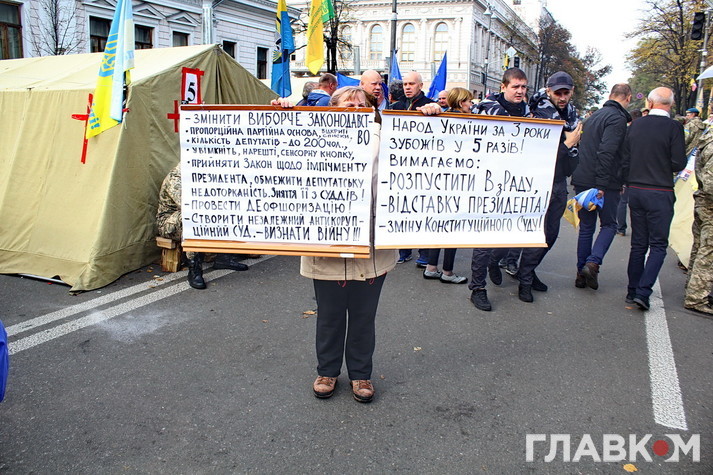 5
ЗМІНИТИ ВИБОРЧЕ ЗАКОНОДАВСТ-
ВО
- ПРОПОРЦІЙНА ПАРТІЙНА ОСНОВА, ВІДКРИТІ
СПИСКИ.
- КІЛЬКІСТЬ ДЕПУТАТІВ - ДО 200 ЧОЛ.,
- УВІМКНІТЬ, НАРЕШТІ, СЕНСОРНУ КНОПКУ,
- ПРИЙНЯТИ ЗАКОН ЩОДО ІМПІЧМЕНТУ
ПРЕЗИДЕНТА, ОБМЕЖИТИ ДЕПУТАТСЬКУ
НЕДОТОРКАНІСТЬ. ЗНЯТТЯ ЇЇ З СУДДІВ!
- ПРОВЕСТИ ДЕОФШОРИЗАЦІЮ!
- СТВОРИТИ НЕЗАЛЕЖНИЙ АНТИКОРУП-
ЦІЙНИЙ СУД. - ВИЗНАТИ ВІЙНУ!!!
НАРОД УКРАЇНИ ЗА 3 РОКИ
ЗУБОЖІВ У 5 РАЗІВ!
ВИМАГАЄМО:
- РОЗПУСТИТИ ВЗРАДУ,
- ВІДСТАВКУ ПРЕЗИДЕНТА!
- ЗМІНУ КОНСТИТУЦІЙНОГО СУДУ!
ГЛАВКОМ